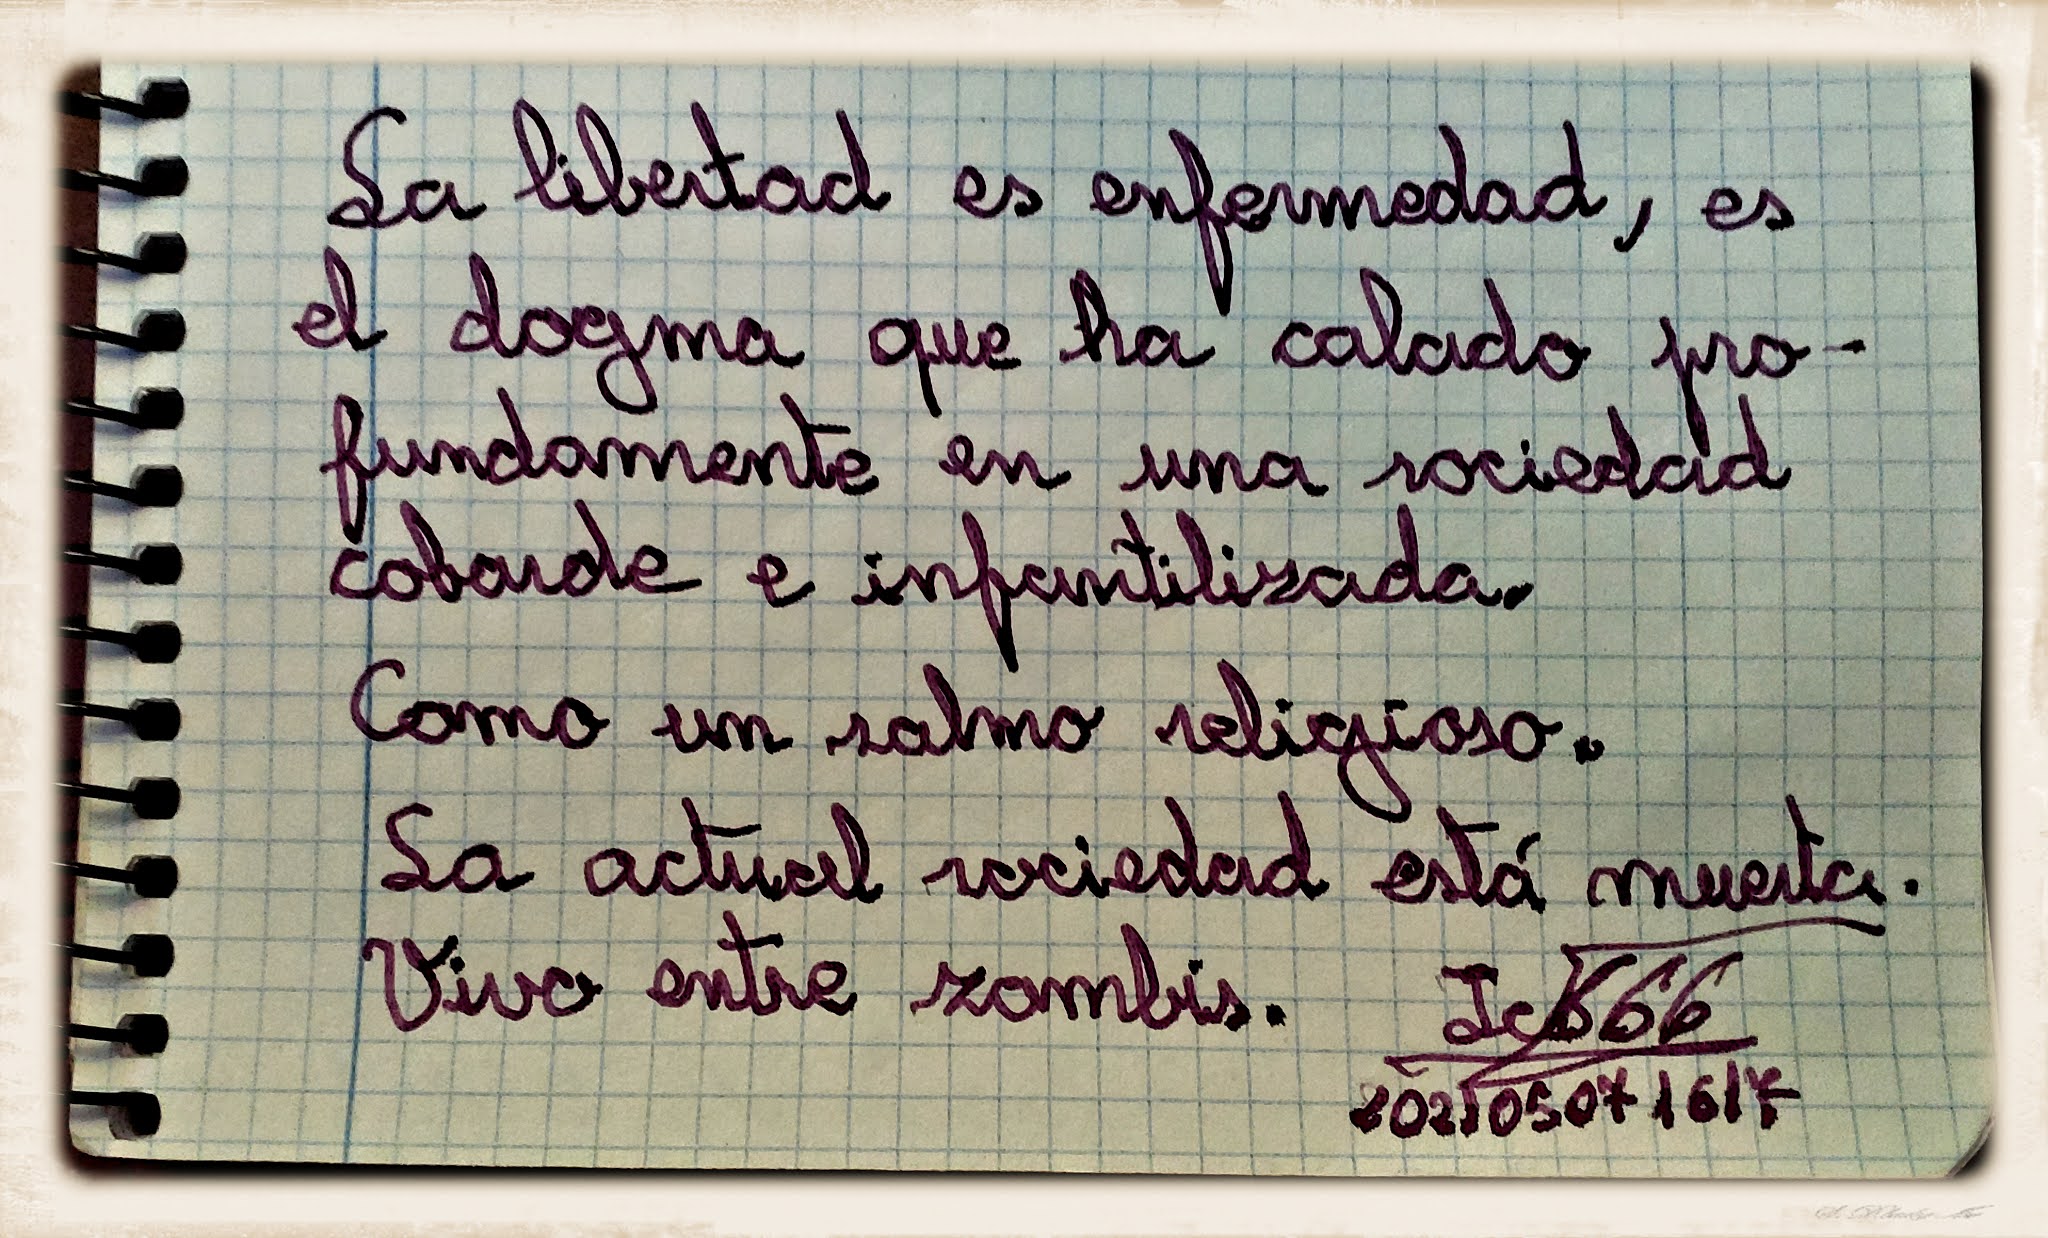 La libertad es enfermedad, es
el dogma que ha calado pro-
fundamente en una sociedad
cobarde e infantilizada.
Como un salmo religioso.
La actual sociedad está muerta.
Vivo entre zombis.
Jc666
202105071617